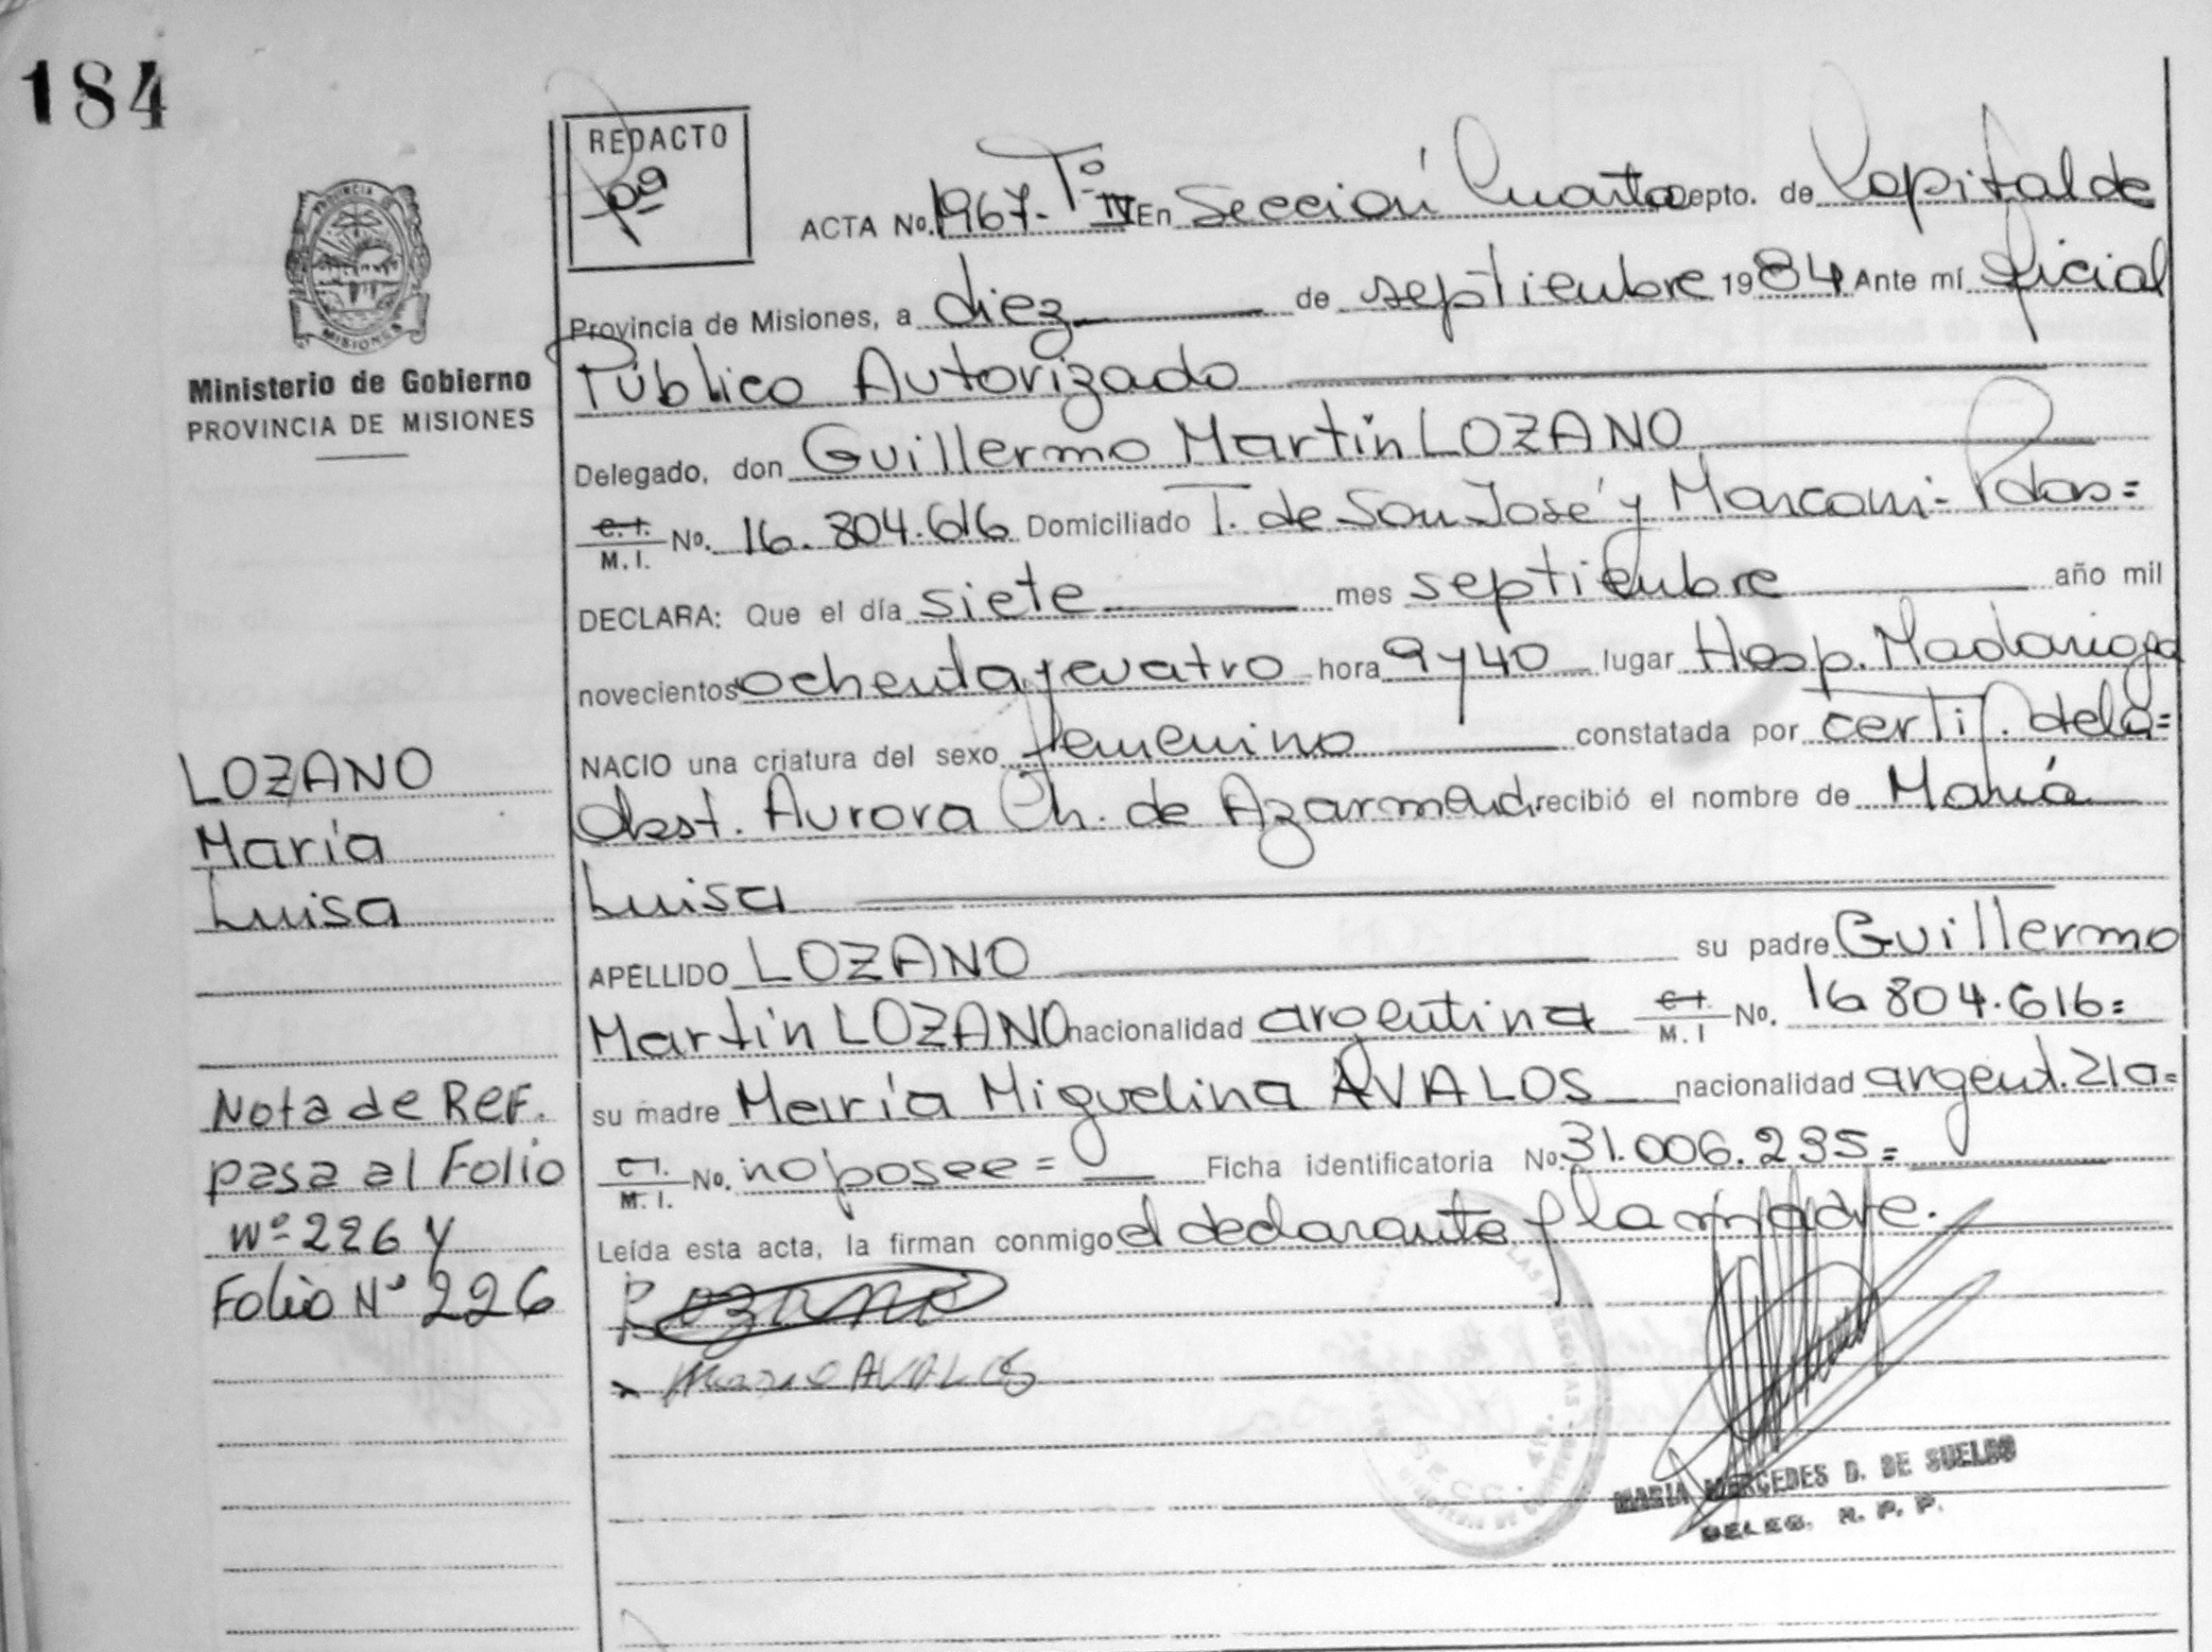 184
REDACTO
ACTA No. 1967- Tº IV En Sección Cuarta Depto. de Capital de
Provincia de Misiones, a diez de septiembre 1984 Ante mí Oficial
Público Autorizado
Delegado, don Guillermo Martín LOZANO
C.I. M.I. No. 16.804.616 Domiciliado T. de San José y Marconi- Pdas=
DECLARA: Que el día siete mes septiembre año mil
novecientos ochenta y cuatro hora 9 y 40 lugar Hosp. Madariaga
NACIO una criatura del sexo femenino constatada por certif. de la=
obst. Aurora Ch. de recibió el nombre de María
Luisa
APELLIDO LOZANO su padre Guillermo
Martín LOZANO nacionalidad argentina C.I. M.I No. 16 804.616=
su madre María Miguelina AVALOS nacionalidad argent. 21a=
C.I. M.I. No. no posee= Ficha identificatoria No. 31.006.235=
Leída esta acta, la firman conmigo el declarante y la madre.
Lozano
AVALOS
MARIA MERCEDES D. DE SUELDO
DELEG. R. P. P.
PROVINCIA
MISIONES
Ministerio de Gobierno
PROVINCIA DE MISIONES
LOZANO
María
Luisa
Nota de Ref.
pasa al Folio
Nº 226 y
Folio Nº 226